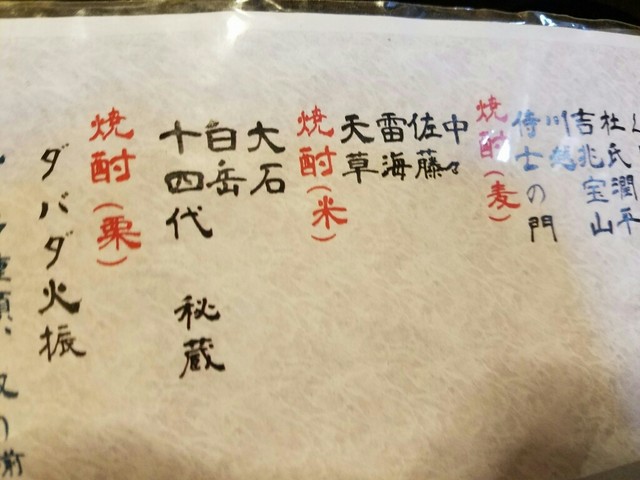 杜氏潤平
吉兆宝山
川越
侍士の門
焼酎(麦)
中々
佐藤
雷海
天草
焼酎(米)
大石
白岳
十四代 秘蔵
焼酎(栗)
ダバダ火振